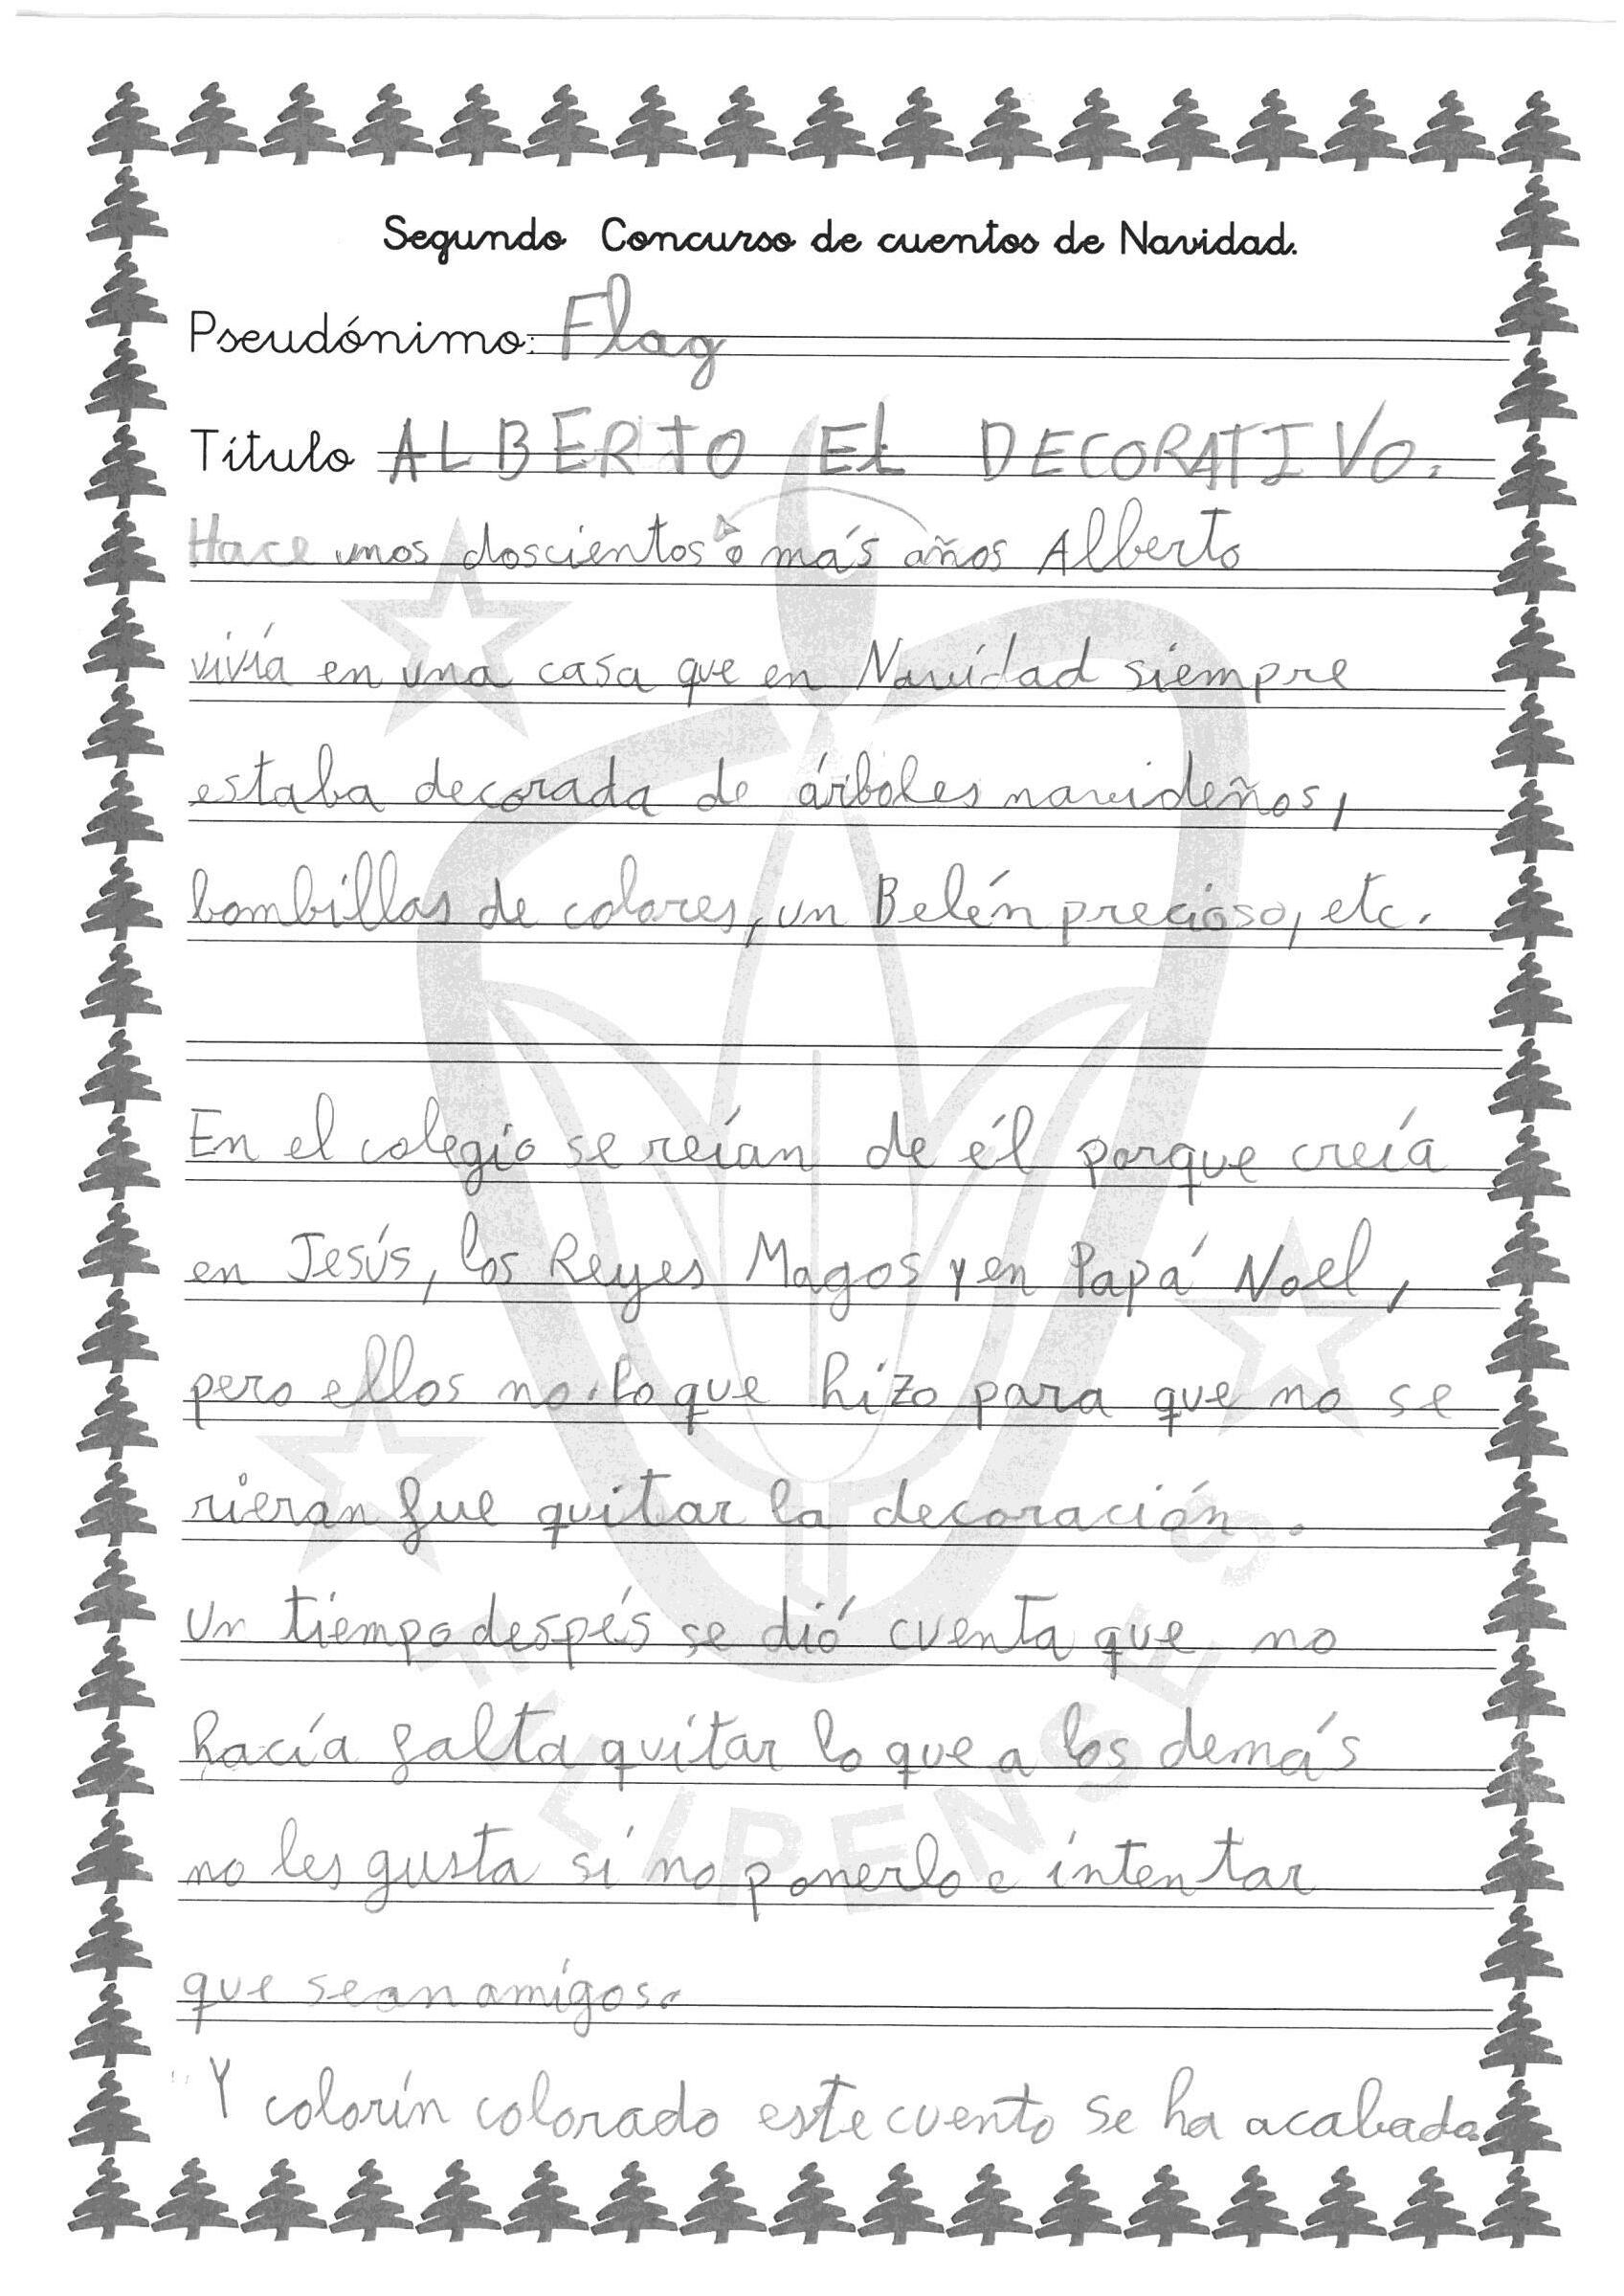 Segundo Concurso de cuentos de Navidad.
Pseudónimo: Flag
Título ALBERTO EL DECORATIVO.
Hace unos doscientos o más años Alberto
vivía en una casa que en Navidad siempre
estaba decorada de árboles navideños,
bombillas de colores, un Belén precioso, etc.
En el colegio se reían de él porque creía
en Jesús, los Reyes Magos y en Papá Noel,
pero ellos no. lo que hizo para que no se
rieran fue quitar la decoración.
Un tiempo despés se dió cuenta que no
hacía falta quitar lo que a los demás
no les gusta si no ponerlo e intentar
que sean amigos.
"Y colorín colorado este cuento se ha acabado.
FILIPENSES